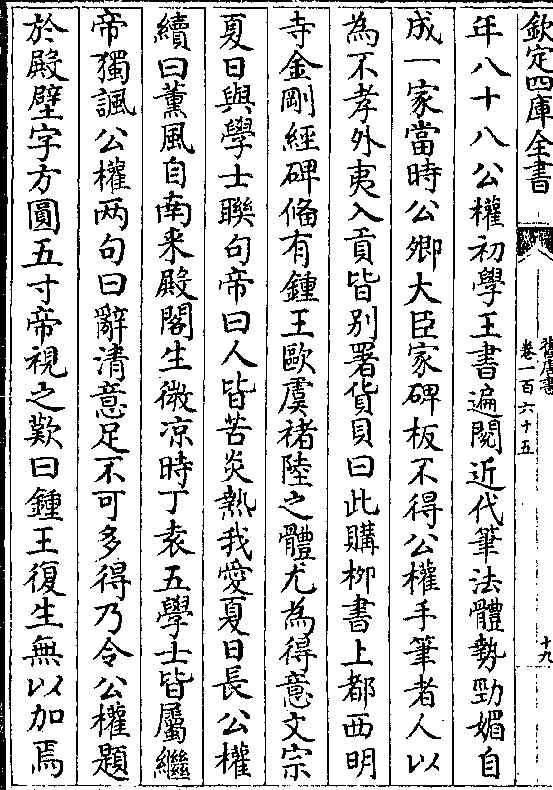 欽定四庫全書
舊唐書
卷一百六十五
十九
年八十八公權初學王書遍閱近代筆法體勢勁媚自
成一家當時公卿大臣家碑板不得公權手筆者人以
為不孝外夷入貢皆别署貨貝曰此購栁書上都西明
寺金剛經碑俻有鍾王歐虞褚陸之體尤為得意文宗
夏日與學士聯句帝曰人皆苦炎熱我愛夏日長公權
續曰薰風自南来殿閣生微凉時丁袁五學士皆屬繼
帝獨諷公權两句曰辭清意足不可多得乃令公權題
於殿壁字方圓五寸帝視之歎曰鍾王復生無以加焉